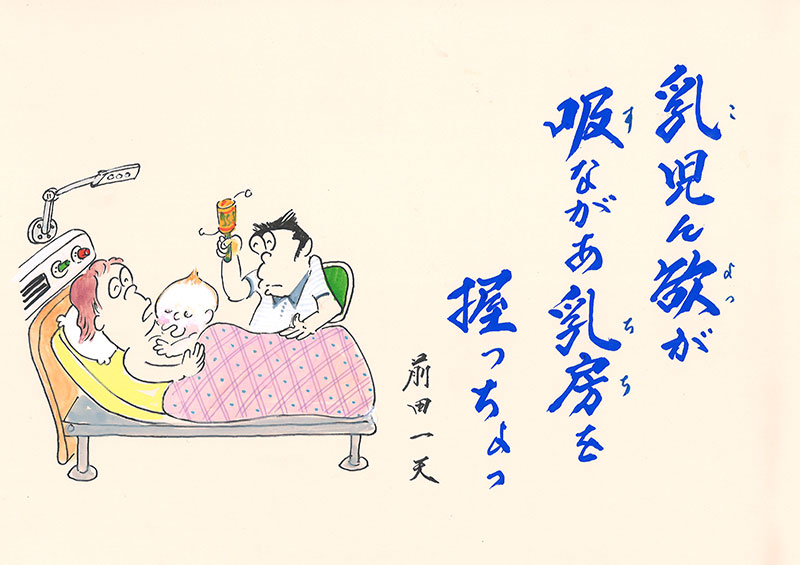 乳児ん欲が
こ
よっ
吸ながあ乳房を
す
ちち
握っちょっ
前田一天